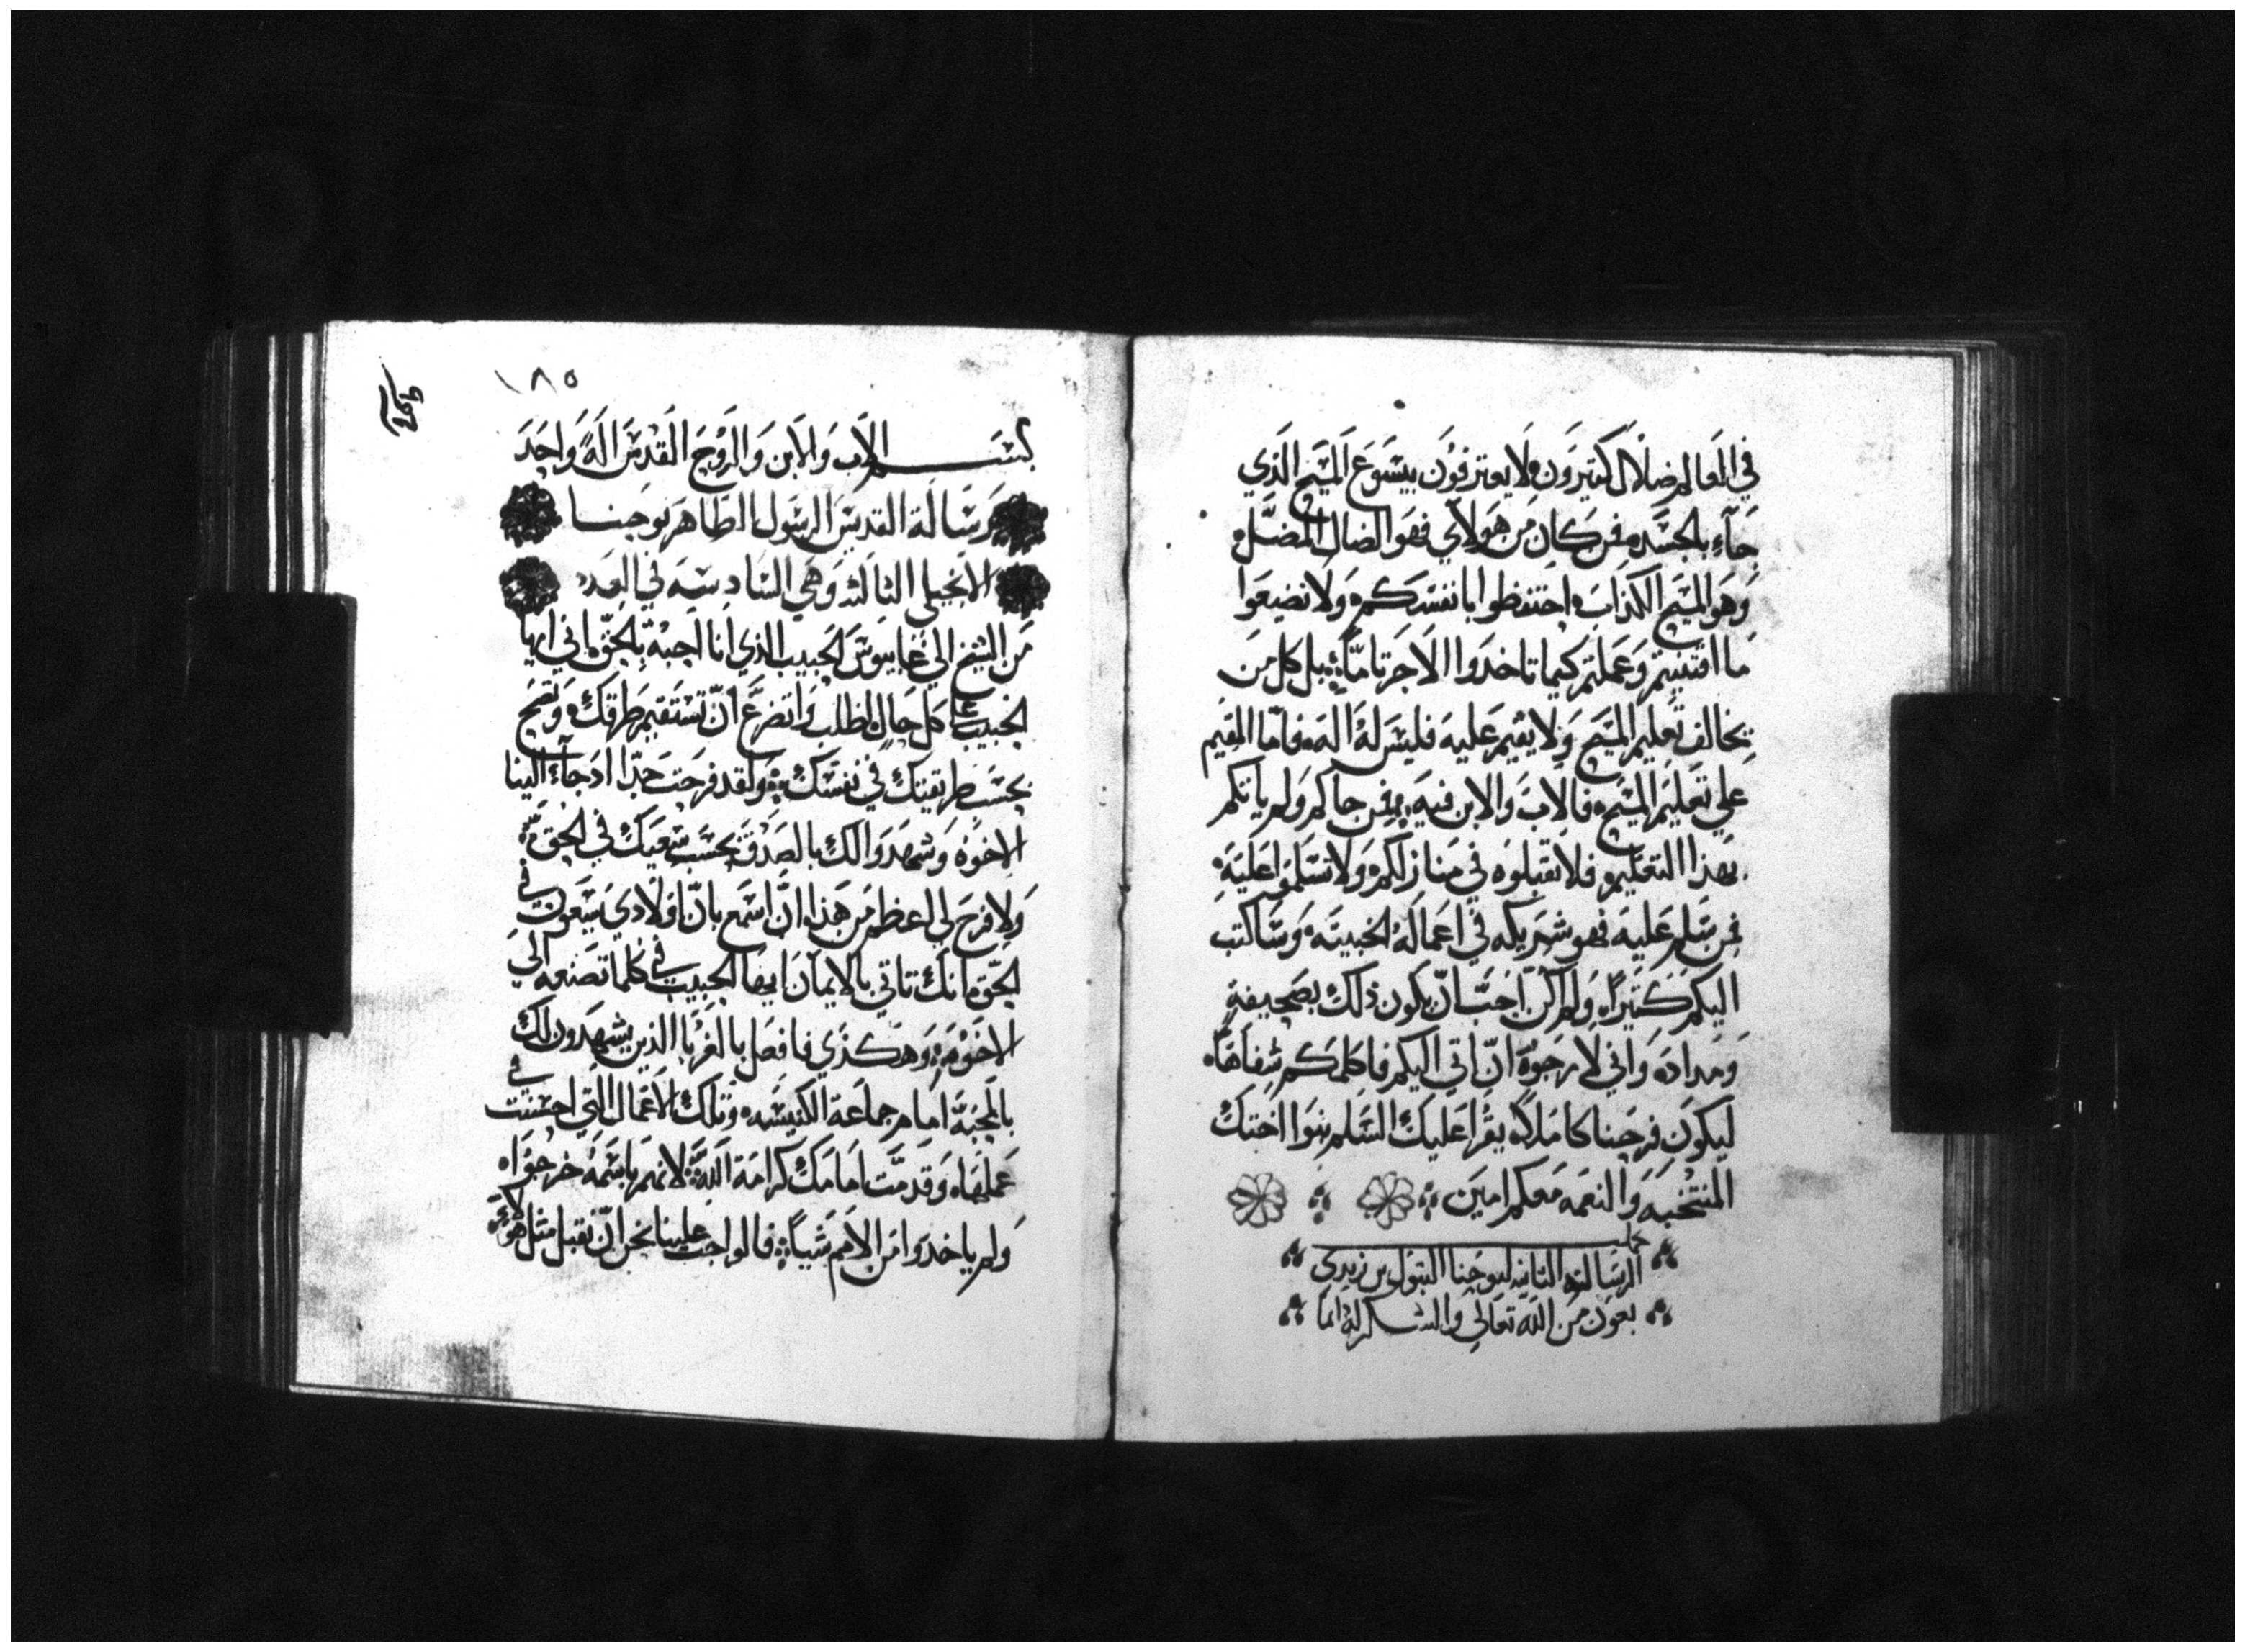 في العالم ضلال كتيرون لا يعترفون بيسوع المسيح الذي
جآء بالجسد فمن كان من هولاي فهو الضال المضل
وهو المسيح الكذاب احتفظوا بانفسكم ولا تضيعوا
ما اقتنيتم وعملتم كيما تاخدوا الاجر تاماً بل كل من
يخالف تعليم المسيح ولا يقيم عليه فليس له اله فاما المقيم
علي تعليم المسيح فالاب والابن فيه فمن جاكم ولم ياتكم
بهذا التعليم فلا تقبلوه في منازلكم ولا تسلموا عليه
فمن سلم عليه فهو شريكه في اعماله الخبيته وساكتب
اليكم كتيراً ولم اكن احب ان يكون ذلك بصحيفة
ومداد واني لارجوا ان اتي اليكم فاكلمكم شفاهاً
ليكون فرحنا كاملاً يقرا عليك السلم بنوا اختك
المنتخبه والنعمه معكم امين
كملت
الرساله التانيه ليوحنا البتول بن زبدي
بعون من الله تعالي والشكر له دايما
١٨٥
بسم الاب والابن والروح القدس اله واحد
رسالة القديس الرسول الطاهر يوحنا
الانجيلي التالته وهي السادسه في العدد
من الشيخ الي غايوس الحبيب الذي انا احبه بالحق اني ايها
الحبيب علي كل حال اطلب واتضرع ان تستقيم طرقك وتصح
بحسب طريقتك في نفسك ولقد فرحت جدا اد جآء الينا
الاخوه وشهدوا لك بالصدق بحسب سعيك في الحق
ولا فرح لي اعظم من هذا ان اسمع بان اولادي يسعون في
الحق انك تاتي بالايمان ايها الحبيب في كلما تصنعه الي
الاخوه وهكذي فافعل بالغربا الذين يشهدون لك
بالمحبة امام جماعة الكنيسه وتلك الاعمال التي احسنت في
عملها وقدمت امامك كرامة الله لانهم باسمه خرجوا
ولم ياخدوا من الامم شياً فالواجب علينا نحن ان نقبل مثل هولاء